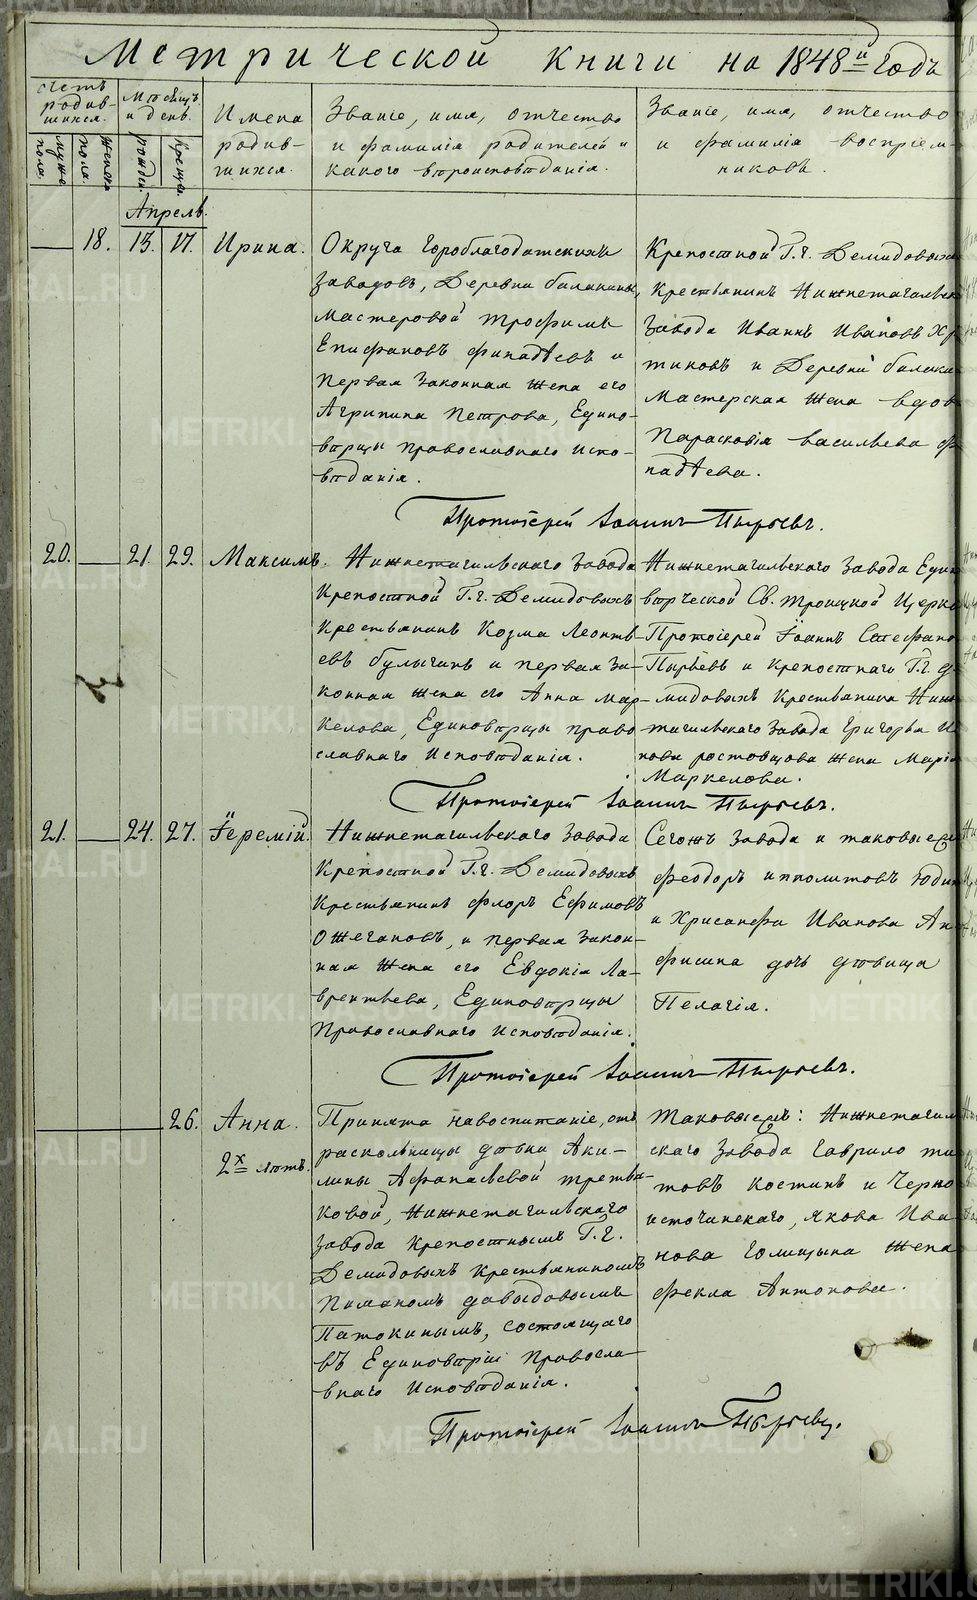 Метрической Книги на 1848й Годъ
Счетъ родив-шихся.
мужс. пола.
женск. пола.
Месяцъ и день.
рожден.
крещен.
Имена
родив-
шихся.
Званіе, имя, отчество
и фамилія родителей и
какого вѣроисповѣданія.
Званіе, имя, отчество
и фамилія воспріем-
никовъ.
Апрель.
18. 13. 17. Ирина.
Округа Гороблагодатскихъ
заводовъ, Деревни балакиной,
мастеровой трофимъ
Епифановъ финадѣевъ и
первая законная жена его
Агрипина Петрова, Едино-
вѣрцы православнаго испо-
вѣданія.
Крепостной Г.г. Демидовыхъ
крестьянинъ Нижнетагильск
завода Иванъ Ивановъ
тиновъ и Деревни балаки
мастерская жена вдов
Парасковія васильева ф
надѣева.
Протоіерей Іоаннъ Пырьевъ.
20. 21. 29. Максимъ.
Нижнетагильскаго завода
Крепостной Г.г. Демидовыхъ
крестьянинъ Козма Леонть-
евъ булыгинъ и первая за-
конная жена его Анна мар-
келова, Единовѣрцы право
славнаго Исповѣданія.
Нижнетагильскаго завода Един
вѣрческой Св. троицкой Церкв
Протоіерей Іоаннъ Стефано
Пырьевъ и крепостнаго Г.г. де
мидовыхъ крестьянина Ниж
тагильскаго завода Григорья
нова ростовщова жена Марія
Маркелова.
Протоіерей Іоаннъ Пырьевъ.
21. 24. 27. Іеремій.
Нижнетагильскаго завода
Крепостной Г.г. Демидовыхъ
крестьянинъ флоръ Ефимовъ
Ожегановъ, и первая закон-
ная жена его Евдокія Ла-
врентьева, Единовѣрцы
Православнаго исповѣданія.
Сегожъ завода и таковые
феодоръ ипполитовъ
и Хрисанфа Иванова Ан
фисина дочь дѣвица
Пелагія.
Протоіерей Іоаннъ Пырьевъ.
26. Анна.
2х лѣтъ.
Принята на воспитаніе, отъ
раскольницы дѣвки Аки-
лины Афанасьевой третья-
ковой, Нижнетагильскаго
завода крепостнымъ Г.г.
Демидовыхъ крестьяниномъ
Пиманомъ давыдовымъ
Патокинымъ, состоящаго
въ Единовѣріи Правосла-
внаго Исповѣданія.
Таковыежъ: Нижнетагил
скаго завода Гаврило ти
товъ Костинъ и Черно
источинскаго, якова Ива
нова Голицына жена
фекла Антонова.
Протоіерей Іоаннъ Пырьевъ.
METRIKI.GASO-URAL.RU